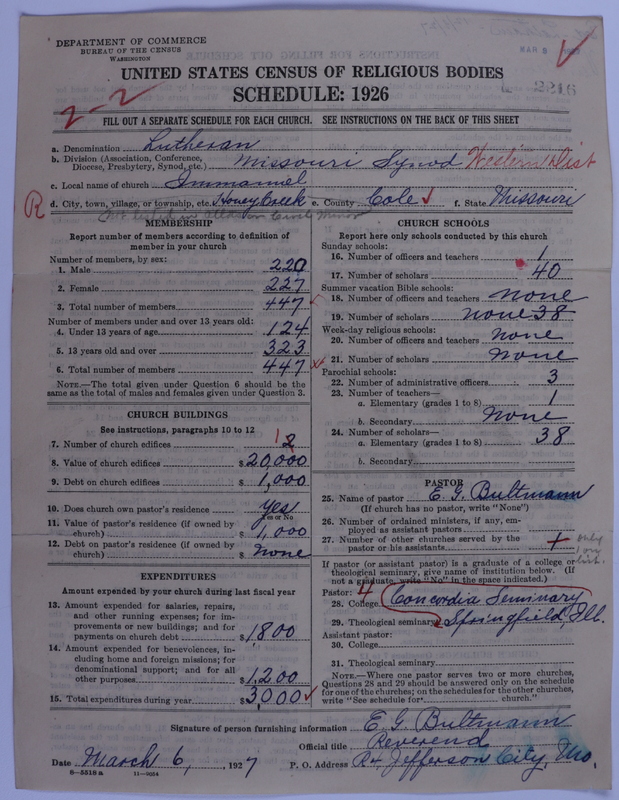 DEPARTMENT OF COMMERCE
BUREAU OF THE CENSUS
WASHINGTON
MAR 8
UNITED STATES CENSUS OF RELIGIOUS BODIES
SCHEDULE: 1926
2216
2-2
FILL OUT A SEPARATE SCHEDULE FOR EACH CHURCH. SEE INSTRUCTIONS ON THE BACK OF THIS SHEET
a. Denomination Lutheran
b. Division (Association, Conference, Diocese, Presbytery, Synod, etc.) Missouri Synod Western Dist
c. Local name of church Immanuel
R d. City, town, village, or township, etc. Honey Creek e. County Cole f. State Missouri
Not listed in
MEMBERSHIP
Report number of members according to definition of
member in your church
Number of members, by sex:
1. Male 220
2. Female 227
3. Total number of members 447
Number of members under and over 13 years old:
4. Under 13 years of age 124
5. 13 years old and over 323
6. Total number of members 447
NOTE.—The total given under Question 6 should be the
same as the total of males and females given under Question 3.
CHURCH BUILDINGS
See instructions, paragraphs 10 to 12
7. Number of church edifices 1 2
8. Value of church edifices $ 20,000
9. Debt on church edifices $ 1,000
10. Does church own pastor's residence Yes
Yes or No
11. Value of pastor's residence (if owned by
church) $ 1,000
12. Debt on pastor's residence (if owned by
church) $ none
EXPENDITURES
Amount expended by your church during last fiscal year
13. Amount expended for salaries, repairs,
and other running expenses; for im-
provements or new buildings; and for
payments on church debt $ 1800
14. Amount expended for benevolences, in-
cluding home and foreign missions; for
denominational support; and for all
other purposes $ 1,200
15. Total expenditures during year $ 3,000
CHURCH SCHOOLS
Report here only schools conducted by this church
Sunday schools:
16. Number of officers and teachers 1
17. Number of scholars 40
Summer vacation Bible schools:
18. Number of officers and teachers none
19. Number of scholars none 38
Week-day religious schools:
20. Number of officers and teachers none
21. Number of scholars none
Parochial schools:
22. Number of administrative officers 3
23. Number of teachers—
a. Elementary (grades 1 to 8) 1
b. Secondary none
24. Number of scholars—
a. Elementary (grades 1 to 8) 38
b. Secondary
PASTOR
25. Name of pastor E. G. Bultmann
(If church has no pastor, write "None")
26. Number of ordained ministers, if any, em-
ployed as assistant pastors
27. Number of other churches served by the
pastor or his assistants
only
on
list.
If pastor (or assistant pastor) is a graduate of a college or
theological seminary, give name of institution below. (If
not a graduate, write "No" in the space indicated.)
Pastor: 4
28. College Concordia Seminary
29. Theological seminary Springfield, Ill.
Assistant pastor:
30. College
31. Theological seminary
NOTE.—Where one pastor serves two or more churches,
Questions 28 and 29 should be answered only on the schedule
for one of the churches; on the schedules for the other churches,
write "See schedule for church."
Signature of person furnishing information E. G. Bultmann
Official title Reverend
Date March 6, 1927 P. O. Address R4, Jefferson City, Mo
8—5518 a 11—9054